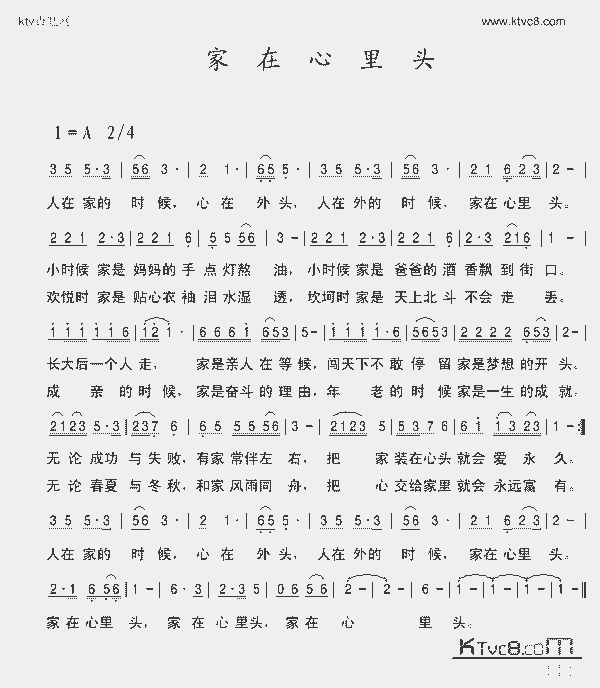 www.ktvc8.com
家 在 心 里 头
1=A 2/4
3 5 5·3 | 56 3· | 2 1· | 65 5· | 3 5 5·3 | 56 3· | 2 1 6 23 | 2 - |
人在 家的 时 候， 心 在 外 头， 人在 外的 时 候， 家在 心里 头。
2 2 1 2·3 | 2 2 1 6 | 5 5 56 | 3 - | 2 2 1 2·3 | 2 2 1 6 | 2·3 216 | 1 - |
小时候 家是 妈妈的 手 点 灯熬 油， 小时候 家是 爸爸的 酒 香飘 到街 口。
欢悦时 家是 贴心衣 袖 泪 水湿 透， 坎坷时 家是 天上北 斗 不会 走 丢。
1 1 1 1 1 6 | 1 2 1· | 6 6 6 1 | 6 6 5 3 | 5 - | 1 1 1 1 1·6 | 5653 5 | 2 2 2 2 | 653 | 2 - |
长大后一个人 走， 家是亲人 在 等 候， 闯天下不 敢 停 留 家是 梦想 的 开 头。
成 亲 的时 候， 家是奋斗 的 理 由， 年 老的 时 候 家是 一生 的 成 就，
2123 5·3 | 237 6 | 6 5 5 5 56 | 3 - | 2123 5 | 5 5 3 7 6 | 6 1 1 3 23 | 1 - :||
无论 成功 与 失败， 有家 常伴左 右， 把 家 装在 心头 就会 爱 永 久。
无论 春夏 与 冬秋， 和家 风雨同 舟， 把 心 交给 家里 就会 永远 富 有。
3 5 5·3 | 56 3· | 2 1· | 65 5· | 3 5 5·3 | 56 3· | 2 1 6 23 | 2 - |
人在 家的 时 候， 心 在 外 头， 人在 外的 时 候， 家在 心里 头。
2·1 6 56 | 1 - | 6·3 | 2·3 5 | 0 6 5 6 | 2 - | 2 - | 6 - | 1 - | 1 - | 1 - | 1 - |
家 在 心里 头， 家 在 心 里头， 家 在 心 里 头。
KTvc8.com